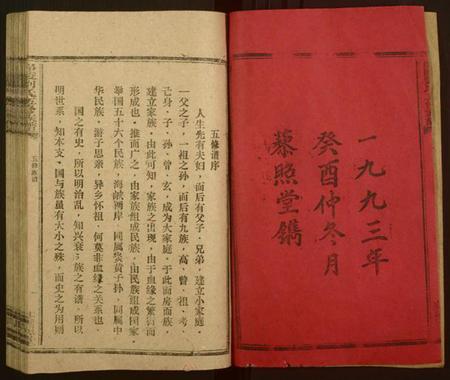 一九九三年
癸酉仲冬月
藜照堂镌
五修谱序
人生先有夫妇，而后有父子，兄弟，建立小家庭，
一父之子，一祖之孙，而后有九族，高、曾、祖、考、
己身，子、孙、曾、玄，成为大家庭，于此而房而族，
建立家族，由此可知，家族之出现，由于血缘之繁衍而
形成也。推而广之，由家族组成民族，由民族组成国家，
举国五十六个民族，海献两岸，同属炎黄子孙，同属中
华民族，游子思亲，异乡怀祖，何莫非血缘之关系也。
国之有史，所以明治乱，知兴衰；族之有谱，所以
明世系，知本支，国与族虽有大小之殊，而史之为用则
五修族谱